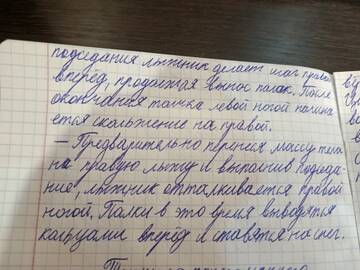 подседания лыжник делает шаг правой
вперёд, продолжая вынос палок. После
окончания толчка левой ногой начина-
ется скольжение на правой.
— Предварительно перенеся массу тела
на правую лыжу и выполнив подседа-
ние, лыжник отталкивается правой
ногой. Палки в это время выводятся
кольцами вперёд и ставятся на снег.